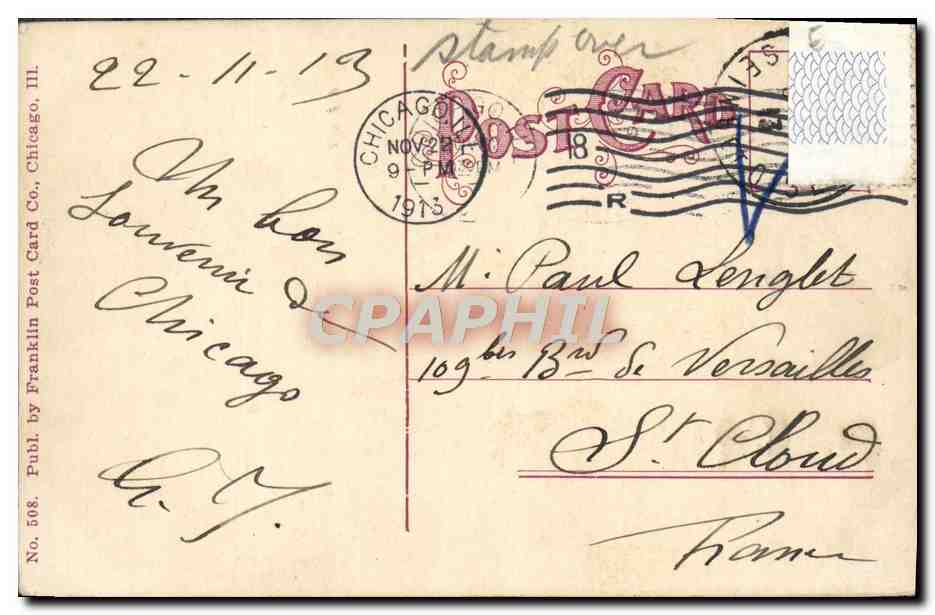 stamp over
22-11-13
POST CARD
CHICAGO, ILL.
NOV 22
9-PM
1913
18
R
Un bon
Souvenir de
Chicago
M. Paul Lenglet
109 bis Bd de Versailles
St Cloud
France
CPAPHIL
No. 508. Publ. by Franklin Post Card Co., Chicago, Ill.